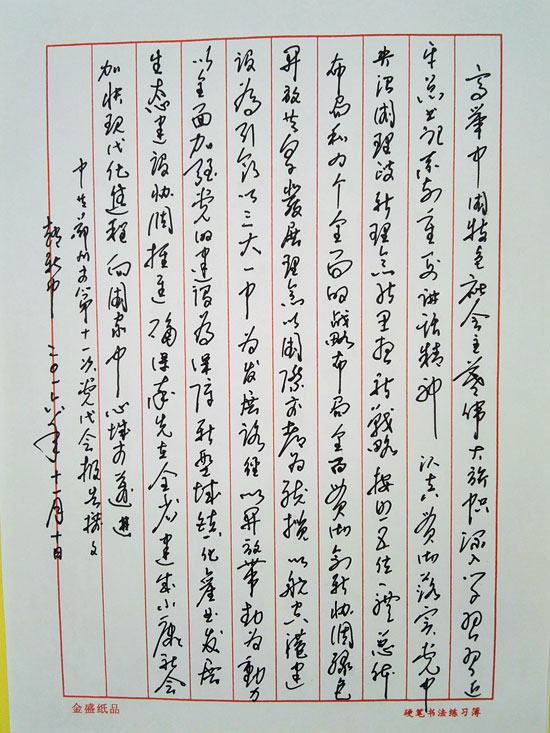 高举中国特色社会主义伟大旗帜深入学习习近
平总书记系列重要讲话精神 认真贯彻落实党中
央治国理政新理念新思想新战略按照五位一体总体
布局和四个全面的战略布局全面贯彻创新协调绿色
开放共享发展理念以国际商都为统揽以航空港建
设为引领以三大一中为发展路径以开放带动为动力
以全面加强党的建设为保障新型城镇化产业发展
生态建设协调推进确保率先在全省建成小康社会
加快现代化进程向国家中心城市迈进
中共郑州市第十一次党代会报告摘文
二〇一六年十一月十日
金盛纸品
硬笔书法练习簿